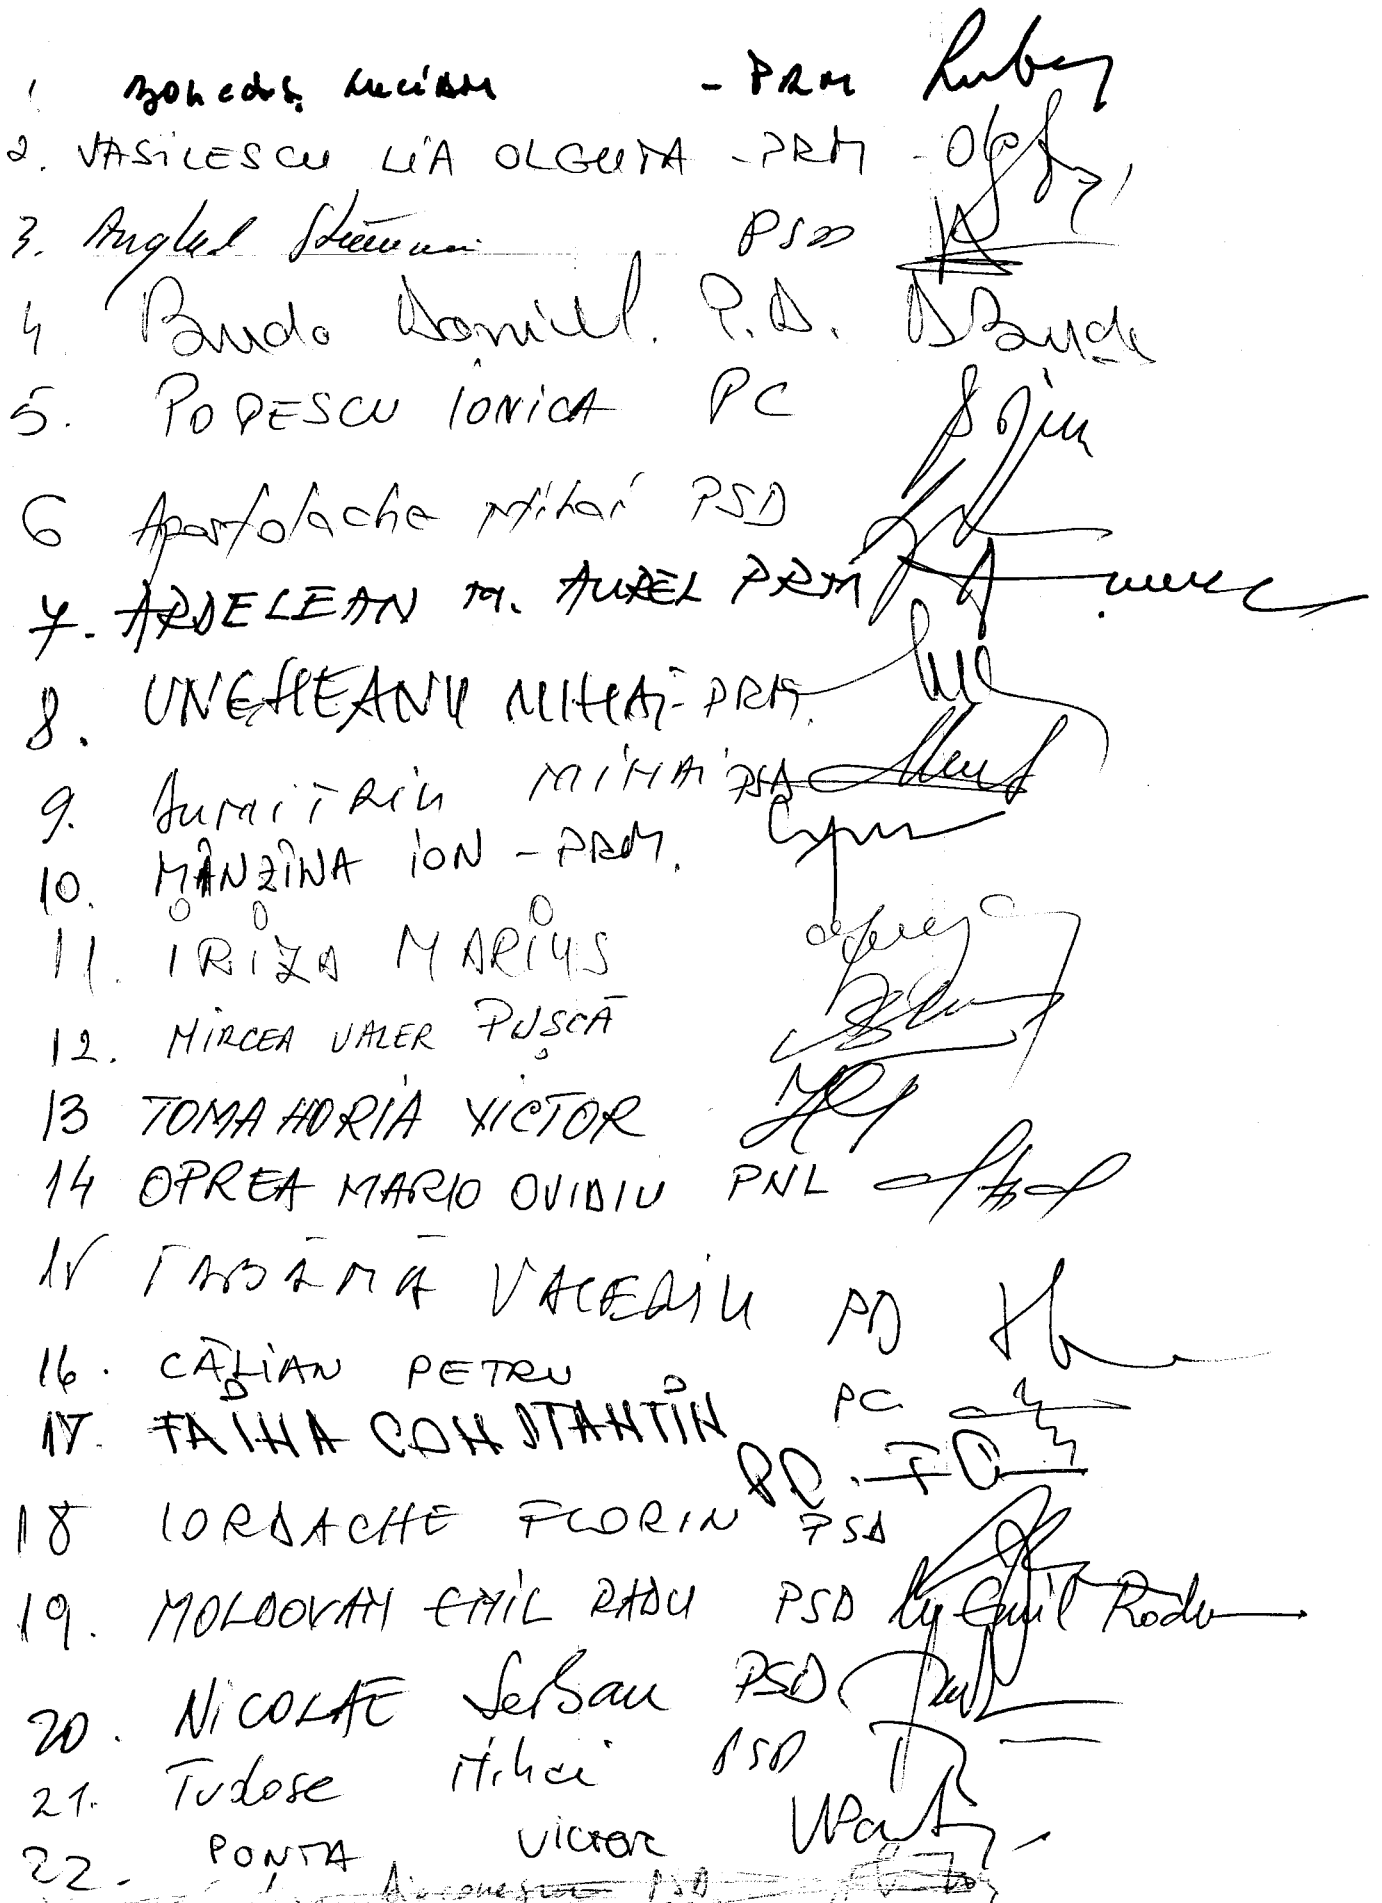 1 Bolcaș Lucian - PRM
2. VASILESCU LIA OLGUȚA - PRM
3. Anghel Stanciu PSD
4 Buda Daniel. P.D. DBuda
5. POPESCU IONICA PC
6 Apostolache Mihai PSD
7. ARDELEAN M. AUREL PRM
8. UNGHEANU MIHAI - PRM.
9. DUMITRIU MIHAI PSD
10. MÂNZÎNA ION - PRM.
11. IRIZA MARIUS
12. MIRCEA VALER PUȘCĂ
13 TOMA HORIA VICTOR
14 OPREA MARIO OVIDIU PNL
15 TABĂRĂ VALERIU PD
16. CĂLIAN PETRU PC
17. FAINA CONSTANTIN PD. FC
18 IORDACHE FLORIN PSD
19. MOLDOVAN EMIL RADU PSD Emil Radu
20. NICOLAE Serban PSD
21. Tudose Mihai PSD
22. PONTA VICTOR
PSD